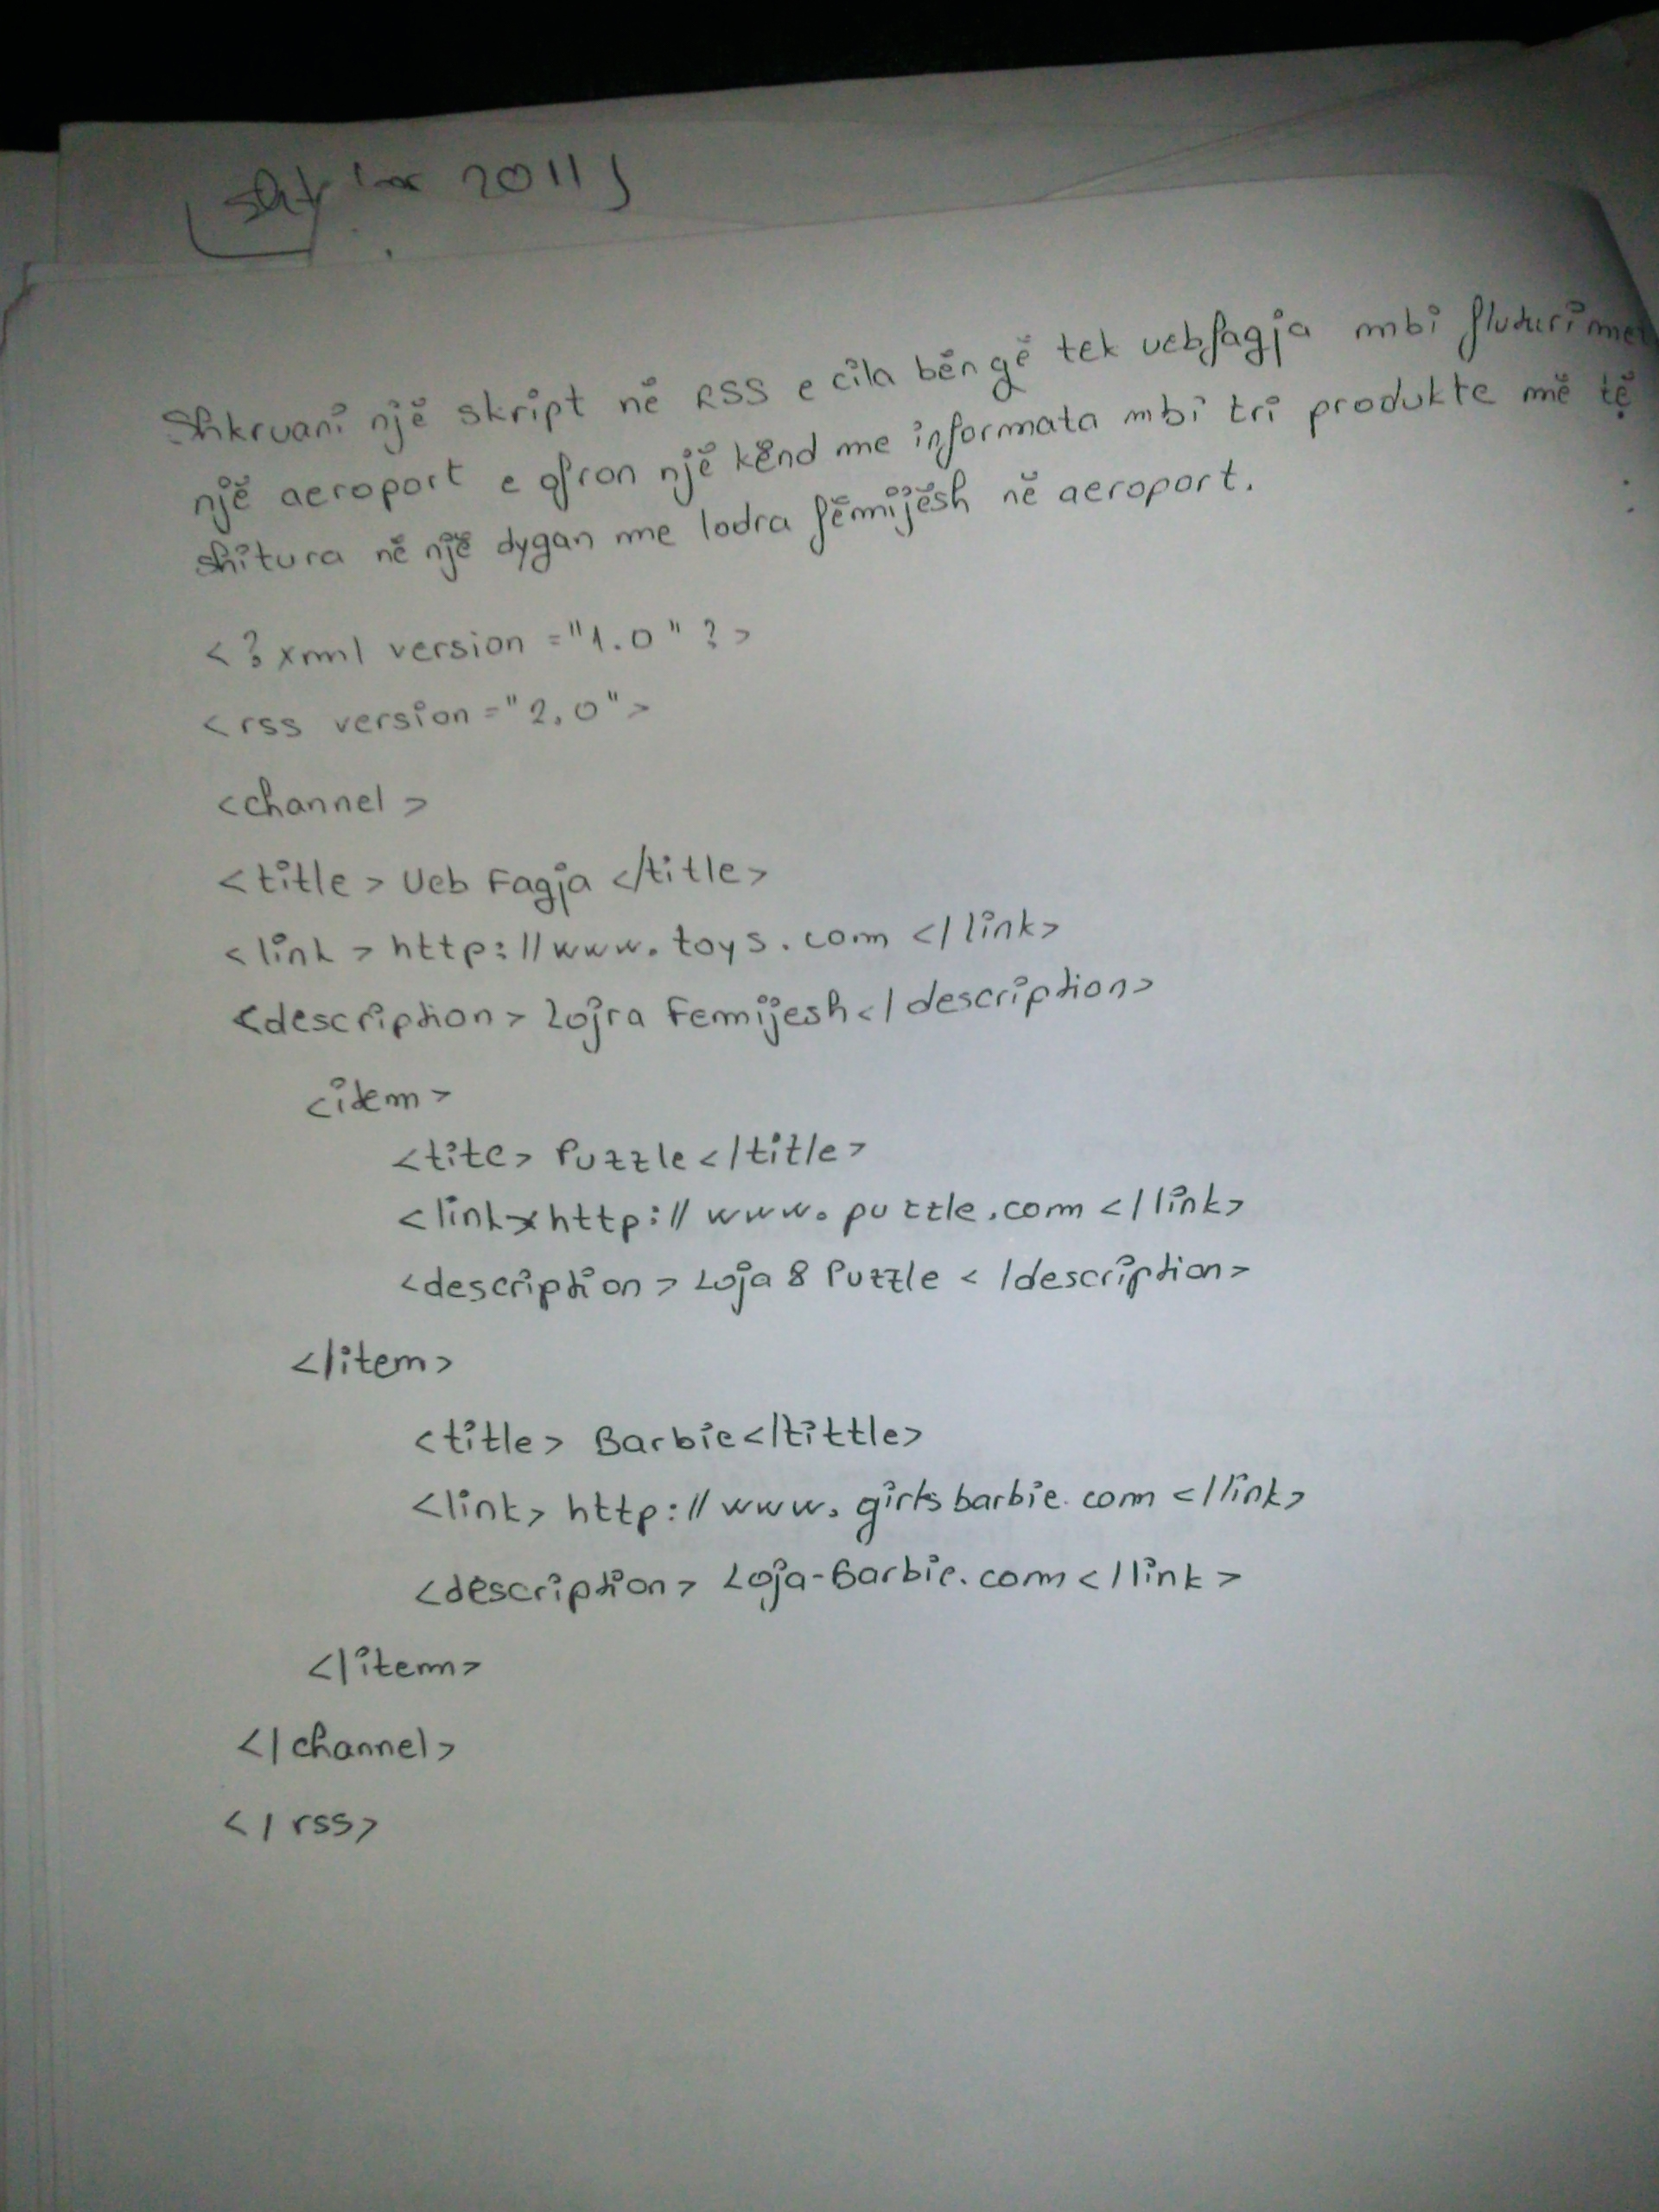 2011)
Shkruani një skript në RSS e cila bën gë tek uebfagja mbi fluturimet
një aeroport e ofron një kënd me informata mbi tri produkte më të
shitura në një dygan me lodra fëmijësh në aeroport.
<?xml version ="1.0" ?>
<rss version ="2.0">
<channel>
<title> Ueb Fagja </title>
<link> http://www.toys.com </link>
<description> Lojra Femijesh </description>
<item>
<tite> Puzzle </title>
<link> http://www.puzzle.com </link>
<description> Loja 8 Puzzle </description>
</item>
<title> Barbie </tittle>
<link> http://www.girlsbarbie.com </link>
<description> Loja-Barbie.com </link>
</item>
</channel>
</rss>